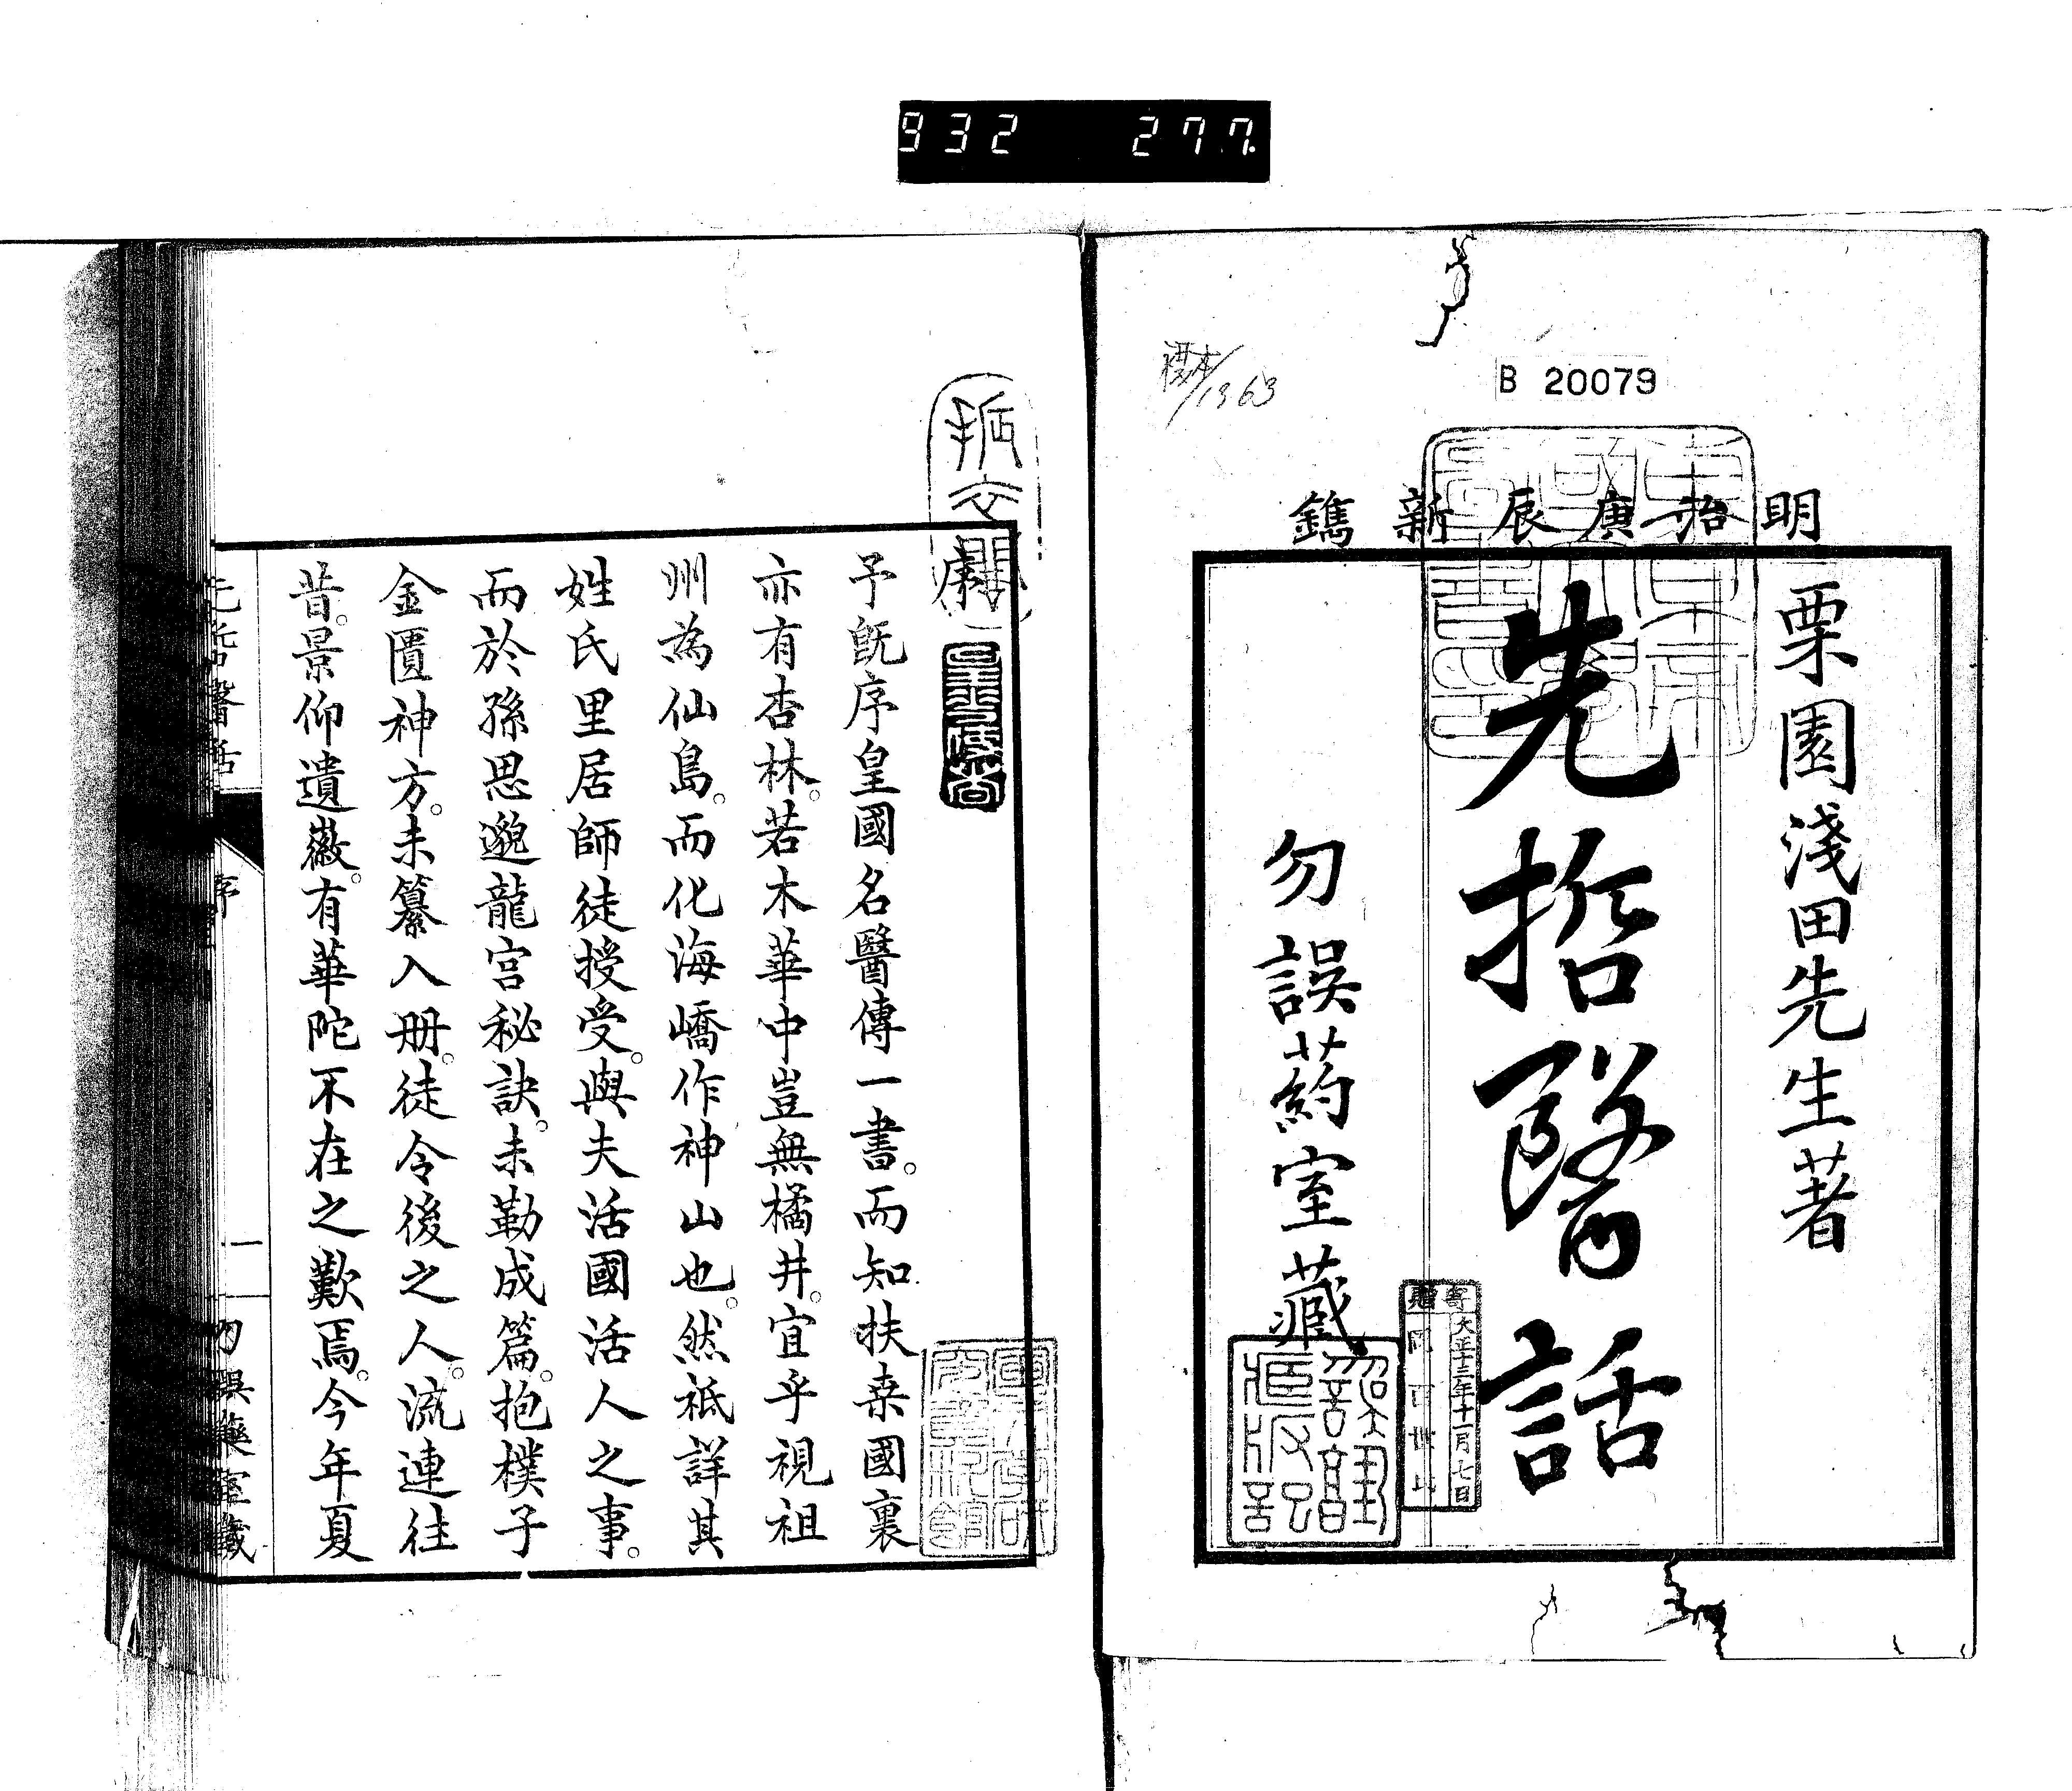 932 277
標本/1963
B 20079
明治庚辰新鐫
栗園淺田先生著
先哲醫話
勿誤葯室藏
寄贈
大正十三年十一月七日
予既序皇國名醫傳一書。而知扶桒國裏
亦有杏林。若木華中豈無橘井。宜乎視祖
州為仙島。而化海嶠作神山也。然祗詳其
姓氏里居師徒授受。與夫活國活人之事。
而於孫思邈龍宮秘訣。未勒成篇。抱樸子
金匱神方。未纂入册。徒令後之人。流連往
昔。景仰遺徽。有華陀不在之歎焉。今年夏
先哲醫話
序
一
勿誤藥室藏